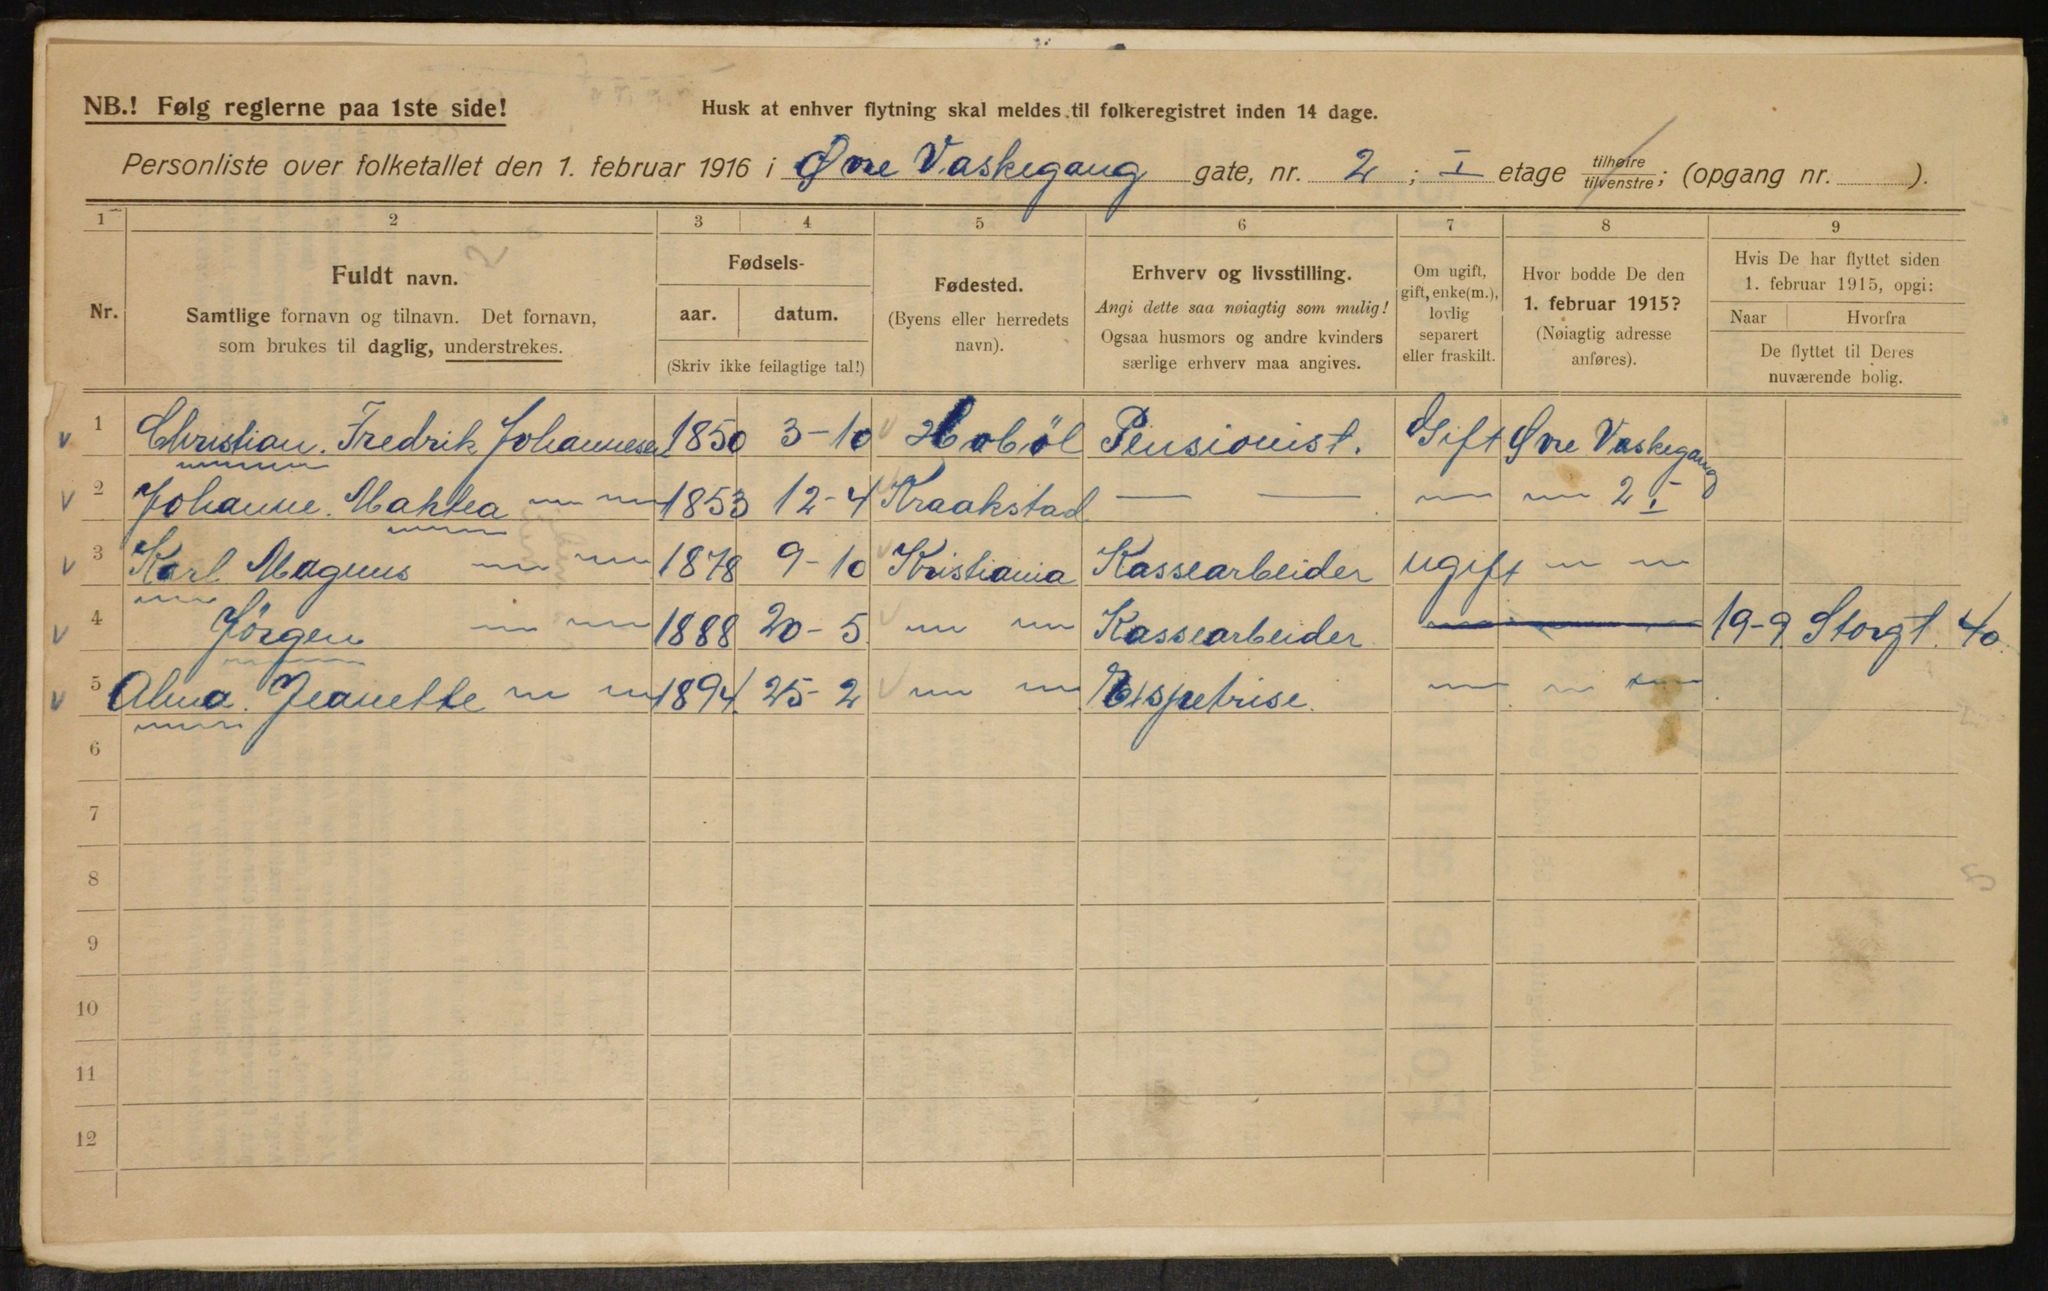 NB.! Følg reglerne paa 1ste side!
Husk at enhver flytning skal meldes til folkeregistret inden 14 dage.
Personliste over folketallet den 1. februar 1916 i Øvre Vaskegang gate, nr. 2; I etage tilhøire tilvenstre; (opgang nr. ).
1 2 3 4 5 6 7 8 9
Nr.
Fuldt navn.
Samtlige fornavn og tilnavn. Det fornavn,
som brukes til daglig, understrekes.
Fødsels-
aar. datum.
(Skriv ikke feilagtige tal!)
Fødested.
(Byens eller herredets
navn).
Erhverv og livsstilling.
Angi dette saa nøiagtig som mulig!
Ogsaa husmors og andre kvinders
særlige erhverv maa angives.
Om ugift,
gift, enke(m.),
lovlig
separert
eller fraskilt.
Hvor bodde De den
1. februar 1915?
(Nøiagtig adresse
anføres).
Hvis De har flyttet siden
1. februar 1915, opgi:
Naar Hvorfra
De flyttet til Deres
nuværende bolig.
1 Christian. Fredrik Johannesen 1850 3-10 Hoböl Pensionist. Gift Øvre Vaskegang
2 Johanne. Mathea 〃 〃 1853 12-4 Kraakstad — — 〃 〃 2 I
3 Karl Magnus 〃 〃 1878 9-10 Kristiania Kassearbeider ugift 〃 〃
4 Jörgen 〃 〃 1888 20-5 〃 〃 Kassearbeider 〃 19-9 Storgt. 40.
5 Alma. Jeanette 〃 〃 1894. 25-2 〃 〃 Expetrise. 〃 〃 〃
6
7
8
9
10
11
12